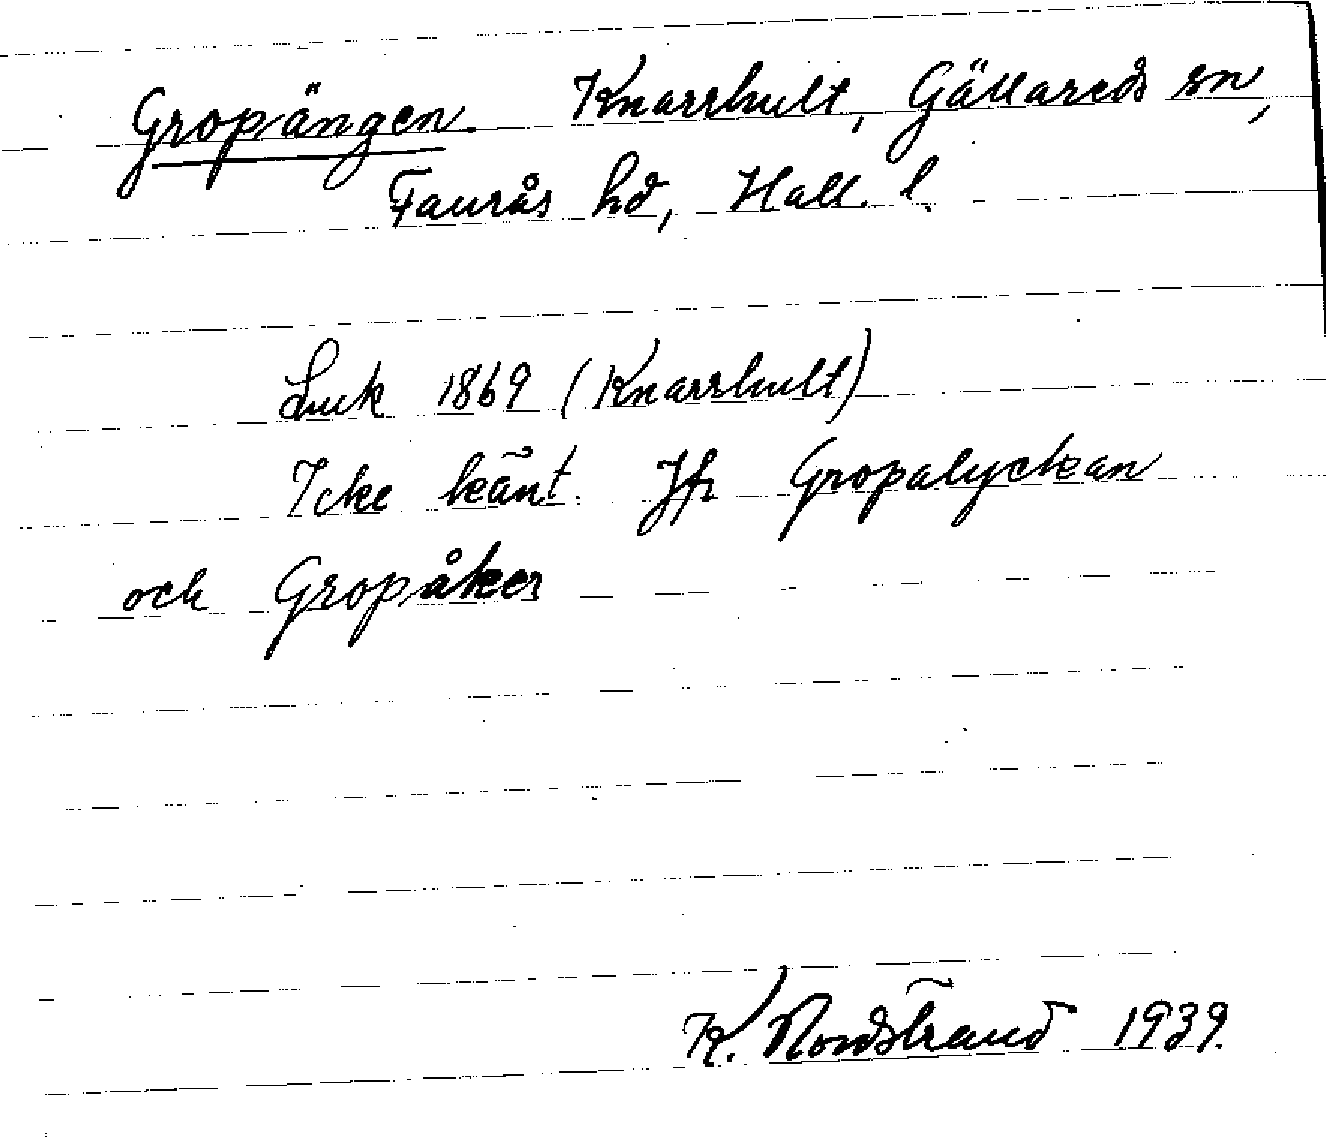 Gropängen. Knarrhult, Gällareds sn,
Faurås hd, Hall. l.
Lmk 1869 (Knarrhult)
Icke känt. Jfr Gropalyckan
och Gropåker
K. Nordstrand 1939.